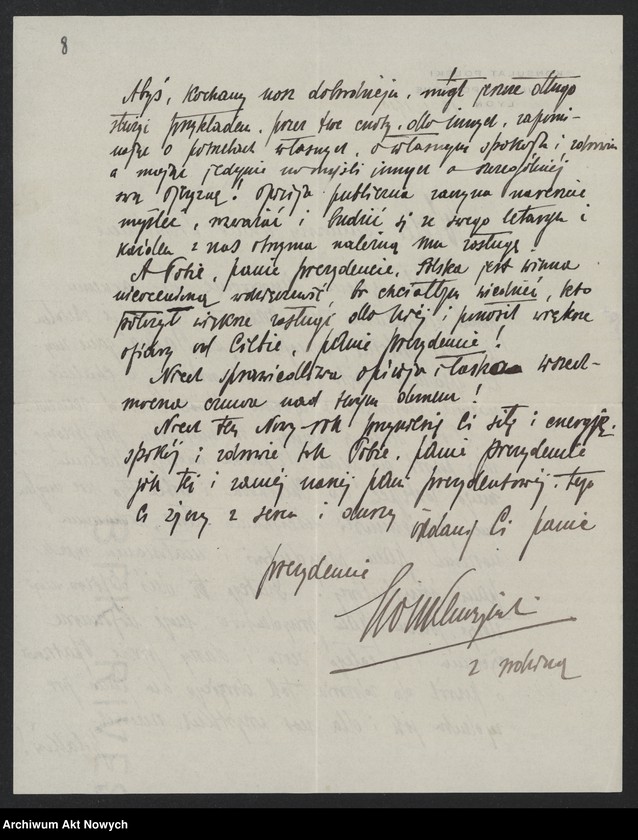 8
Abyś, kochany nasz dobrodzieju, mógł jeszcze długo
służyć przykładem, przez twe cnoty, dla innych, zapomi-
nając o potrzebach własnych, o własnym spokoju i zdrowiu
a mając jedynie na myśli innych a szczególniej
swą Ojczyznę! Opinja publiczna zaczyna nareszcie
myśleć, rozważać i budzić się ze swego letargu i
każden z nas otrzyma należną mu zasługę.
A Tobie, panie prezydencie, Polska jest winna
nieocenioną wdzięczność, bo chciałbym wiedzieć, kto
położył większe zasługi dla Niej i ponosił większe
ofiary od Ciebie, panie prezydencie!
Niech sprawiedliwa opinja i łaska wszech-
mocna czuwa nad twym domem!
Niech Ten Nowy-rok przyniesie Ci siłę i energję,
spokój i zdrowie tak Tobie, panie prezydencie
jak Tej i zacnej naszej pani prezydentowej, tego
Ci życzy z serca i duszy oddany Ci panie
prezydencie
z rodziną
Archiwum Akt Nowych